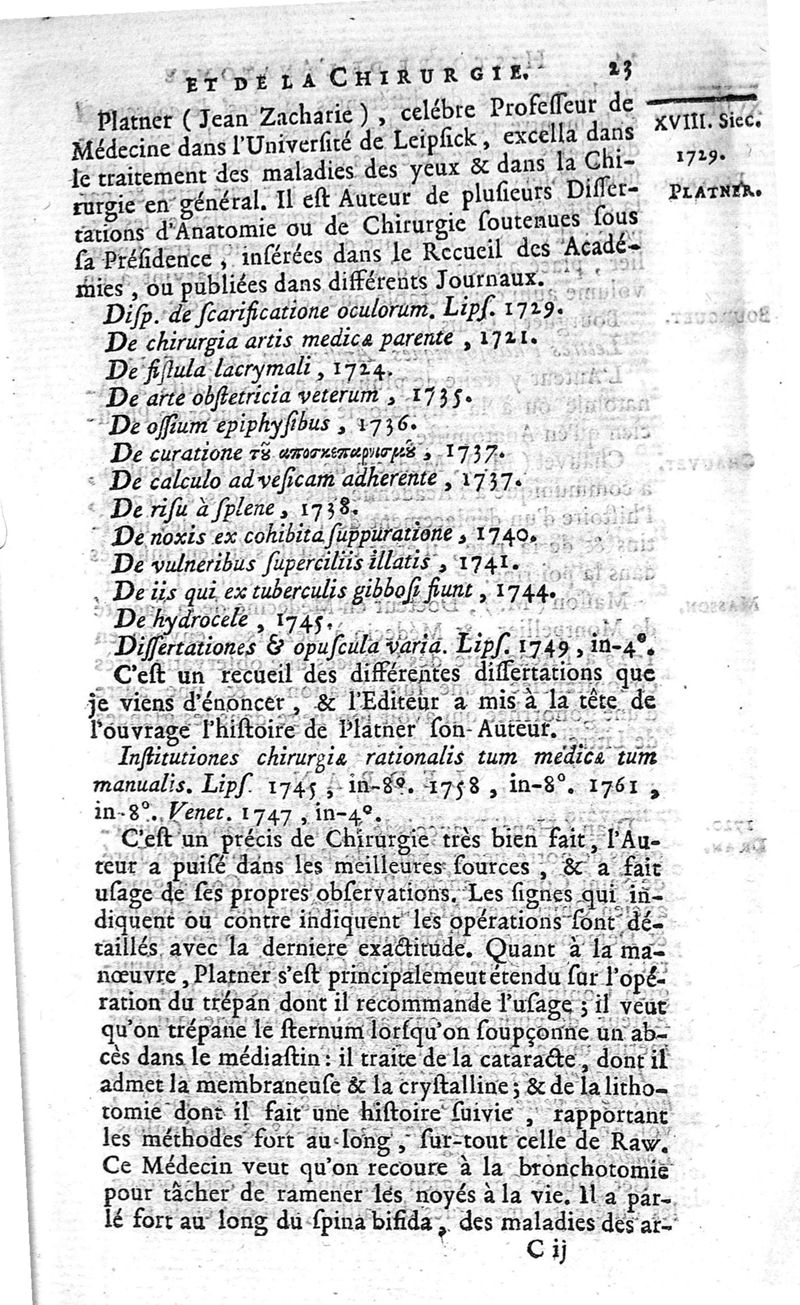 ET DE LA CHIRURGIE. 23
Platner (Jean Zacharie), celébre Professeur de
Médecine dans l'Université de Leipsick, excella dans
le traitement des maladies des yeux & dans la Chi-
rurgie en général. Il est Auteur de plusieurs Disser-
tations d'Anatomie ou de Chirurgie soutenues sous
sa Présidence, insérées dans le Recueil des Acadé-
mies, ou publiées dans différents Journaux.
XVIII. Siec.
1729.
PLATNER.
Disp. de scarificatione oculorum. Lips. 1729.
De chirurgia artis medicæ parente, 1721.
De fistula lacrymali, 1724.
De arte obstetricia veterum, 1735.
De ossium epiphysibus, 1736.
De curatione τȣ αποσκεπαρνισμȣ̃, 1737.
De calculo ad vesicam adherente, 1737.
De risu à splene, 1738.
De noxis ex cohibita suppuratione, 1740.
De vulneribus superciliis illatis, 1741.
De iis qui ex tuberculis gibbosi fiunt, 1744.
De hydrocele, 1745.
Dissertationes & opuscula varia. Lips. 1749, in-4°.
C'est un recueil des différentes dissertations que
je viens d'énoncer, & l'Editeur a mis à la tête de
l'ouvrage l'histoire de Platner son Auteur.
Institutiones chirurgiæ rationalis tum medicæ tum
manualis. Lips. 1745, in-8°. 1758, in-8°. 1761,
in-8°. Venet. 1747, in-4°.
C'est un précis de Chirurgie très bien fait, l'Au-
teur a puisé dans les meilleures sources, & a fait
usage de ses propres observations. Les signes qui in-
diquent ou contre indiquent les opérations sont dé-
taillés avec la derniere exactitude. Quant à la ma-
nœuvre, Platner s'est principalemeut étendu sur l'opé-
ration du trépan dont il recommande l'usage; il veut
qu'on trépane le sternum lorsqu'on soupçonne un ab-
cès dans le médiastin: il traite de la cataracte, dont il
admet la membraneuse & la crystalline; & de la litho-
tomie dont il fait une histoire suivie, rapportant
les méthodes fort au long, sur-tout celle de Raw.
Ce Médecin veut qu'on recoure à la bronchotomie
pour tâcher de ramener les noyés à la vie. Il a par-
lé fort au long du spina bifida, des maladies des ar-
C ij